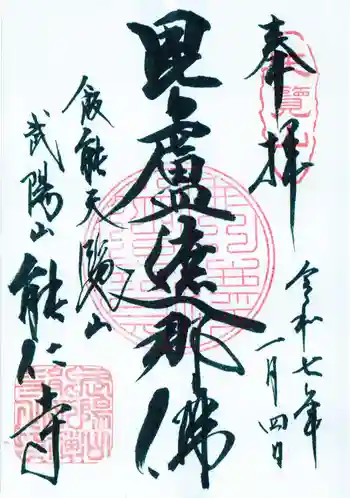 奉拝
令和七年
一月四日
毘盧遮那佛
飯能天覧山
武陽山
能仁寺